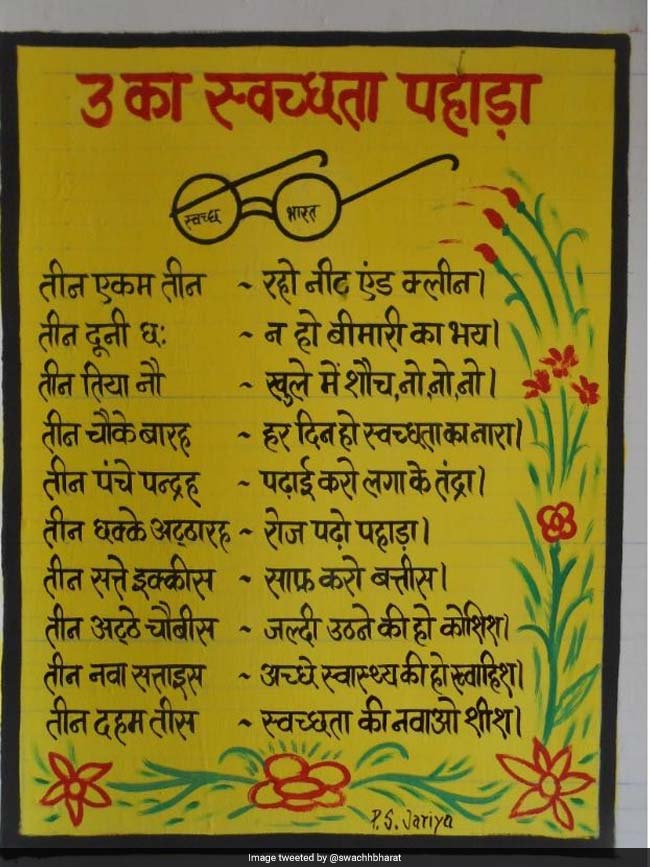 3 का स्वच्छता पहाड़ा
स्वच्छ भारत
तीन एकम तीन ~ रहो नीट एंड क्लीन।
तीन दूनी छः ~ न हो बीमारी का भय।
तीन तिया नौ ~ खुले में शौच, नो, नो, नो।
तीन चौके बारह ~ हर दिन हो स्वच्छता का नारा।
तीन पंचे पन्द्रह ~ पढ़ाई करो लगा के तंद्रा।
तीन छक्के अट्ठारह ~ रोज पढ़ो पहाड़ा।
तीन सत्ते इक्कीस ~ साफ करो बत्तीस।
तीन अट्ठे चौबीस ~ जल्दी उठने की हो कोशिश।
तीन नवा सत्ताइस ~ अच्छे स्वास्थ्य की हो ख्वाहिश।
तीन दहम तीस ~ स्वच्छता की नवाओ शीश।
P.S. Jariya
Image tweeted by @swachhbharat